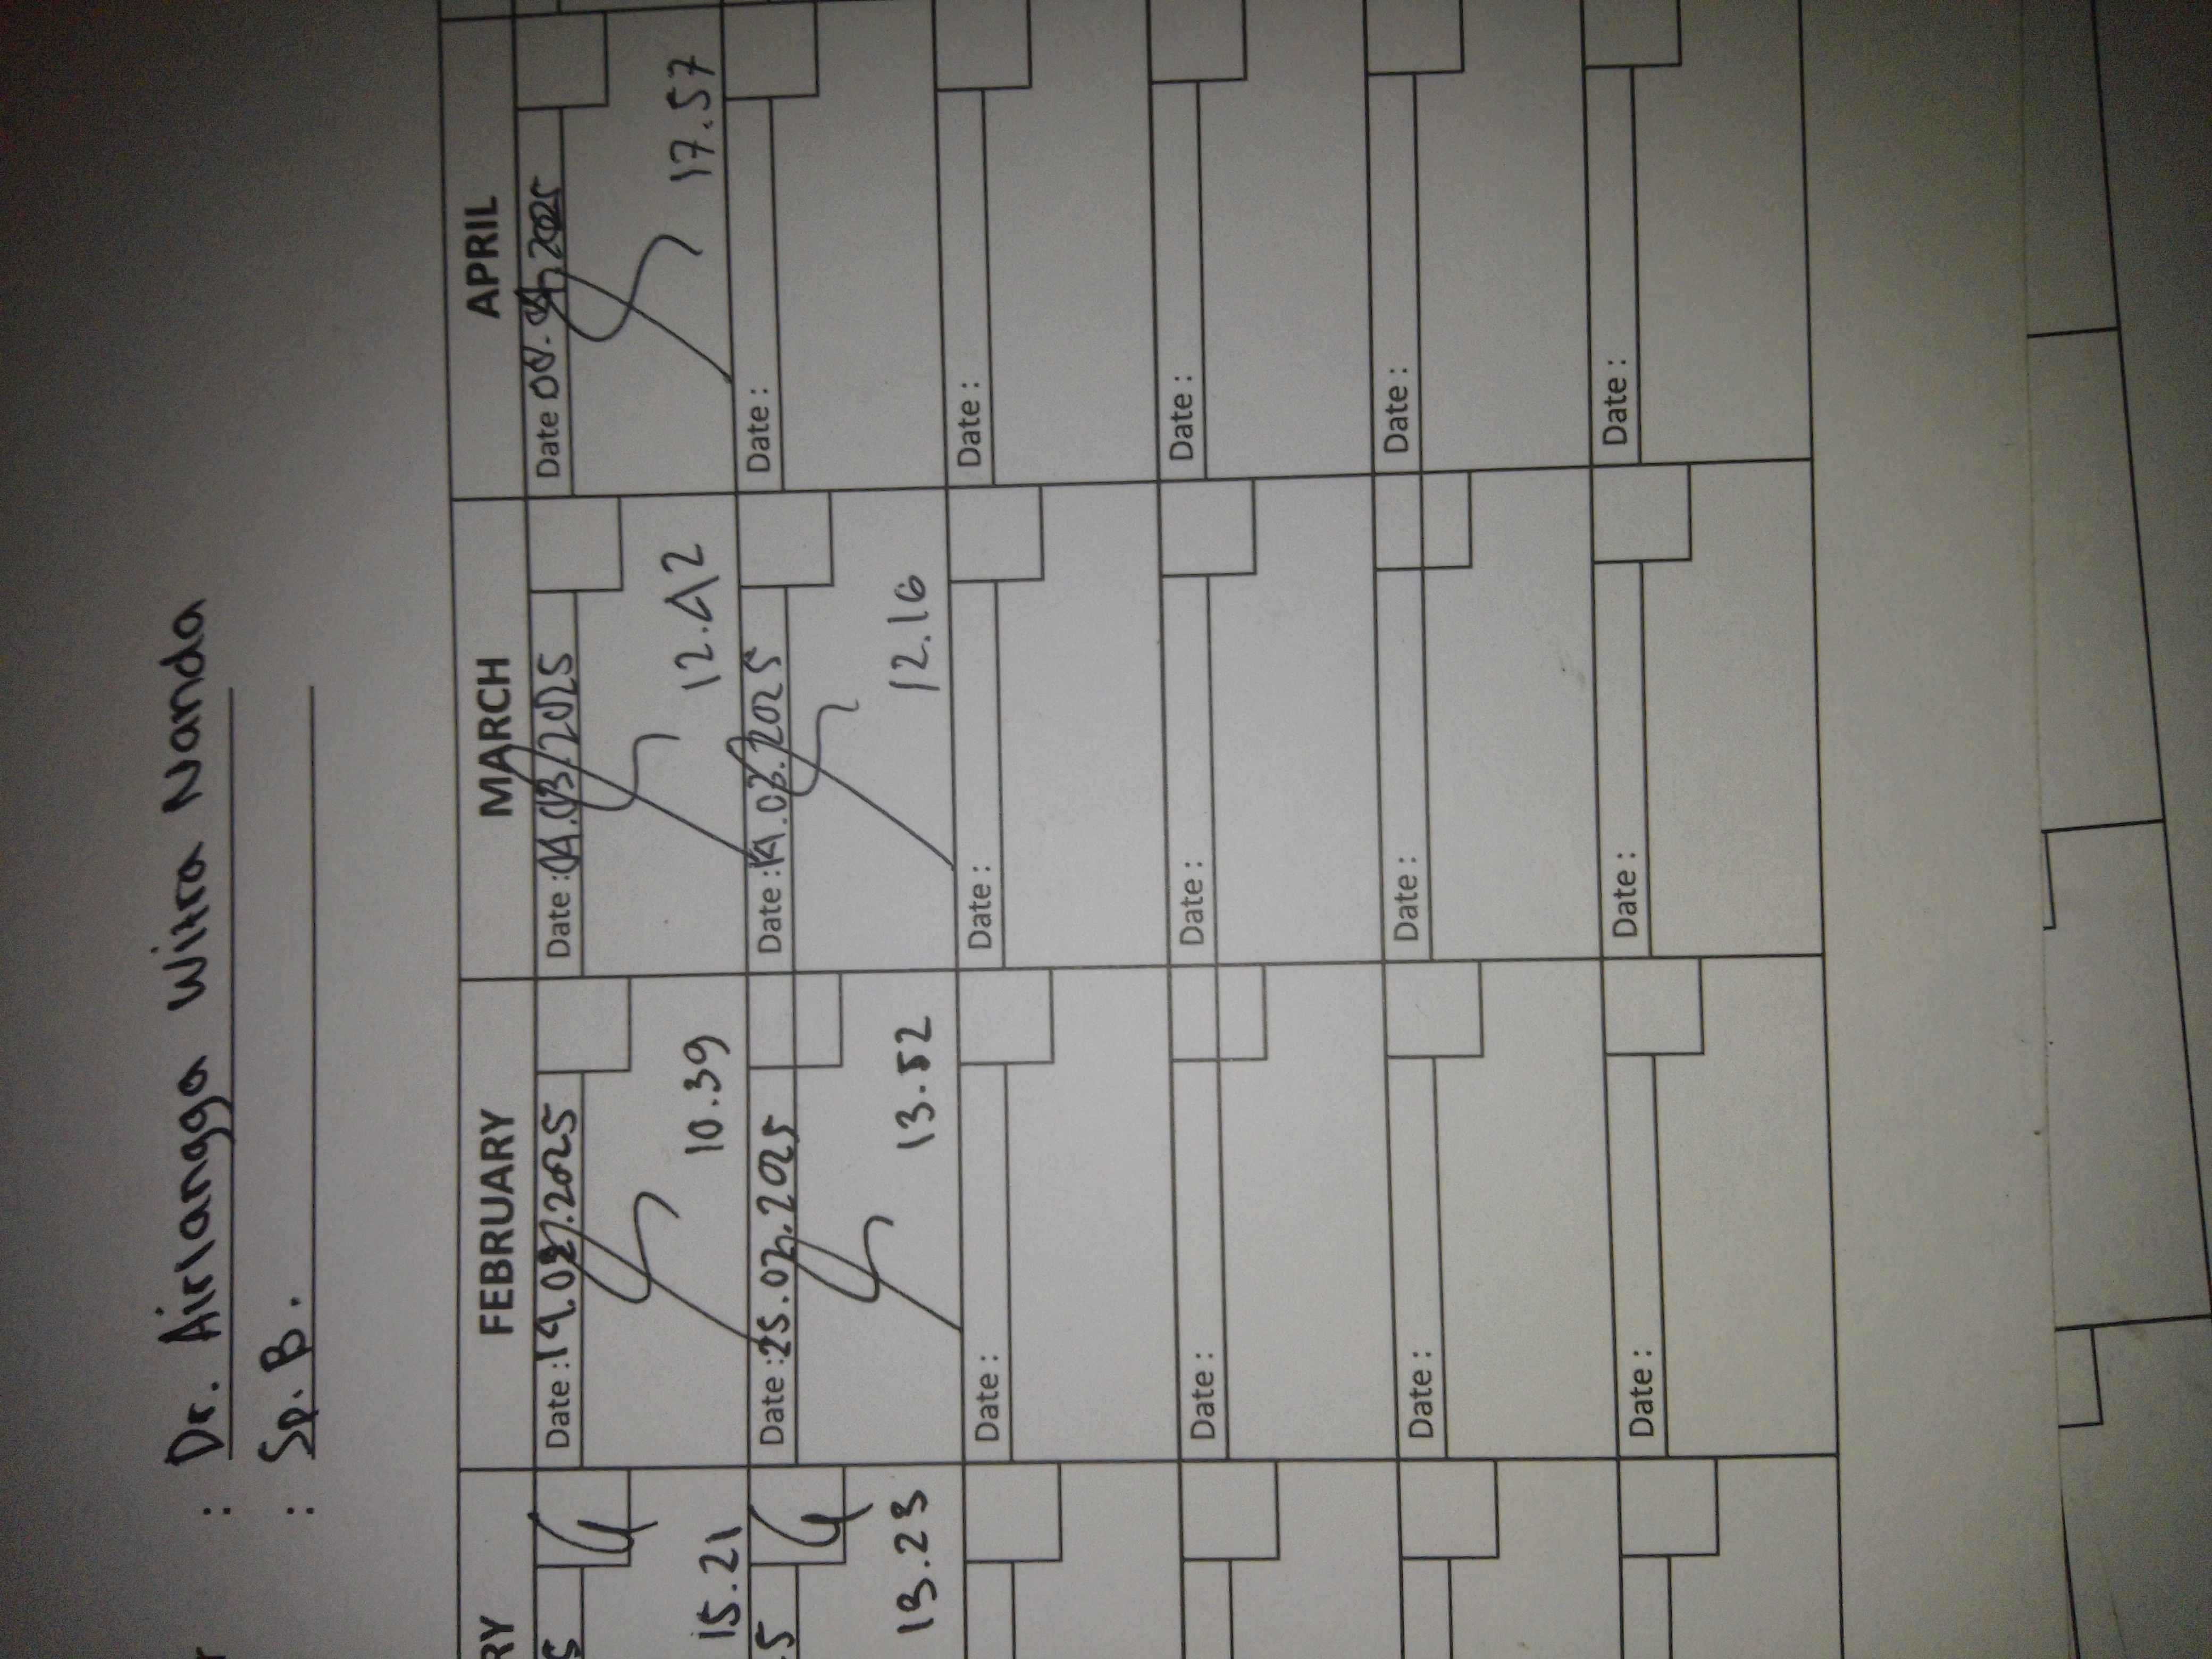 : Dr. Airlangga Witra Nanda
: Sp. B.
RY FEBRUARY MARCH APRIL
5 Date : 19.02.2025 Date : 04.03.2025 Date 2025
15.21 10.39 12.42 17.57
5 Date : 25.02.2025 Date : 14.03.2025 Date :
13.23 13.52 12.16
Date : Date : Date :
Date : Date : Date :
Date : Date : Date :
Date : Date : Date :